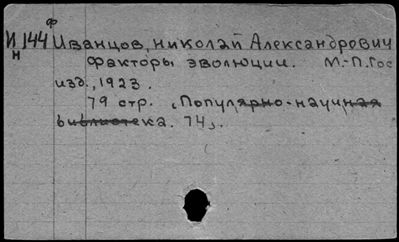 ф
И 144 Иванцов, Николай Александрович
н
Факторы эволюции. М.-П. Гос
изд., 1923.
79 стр. (Популярно-научная
библиотека. 74).